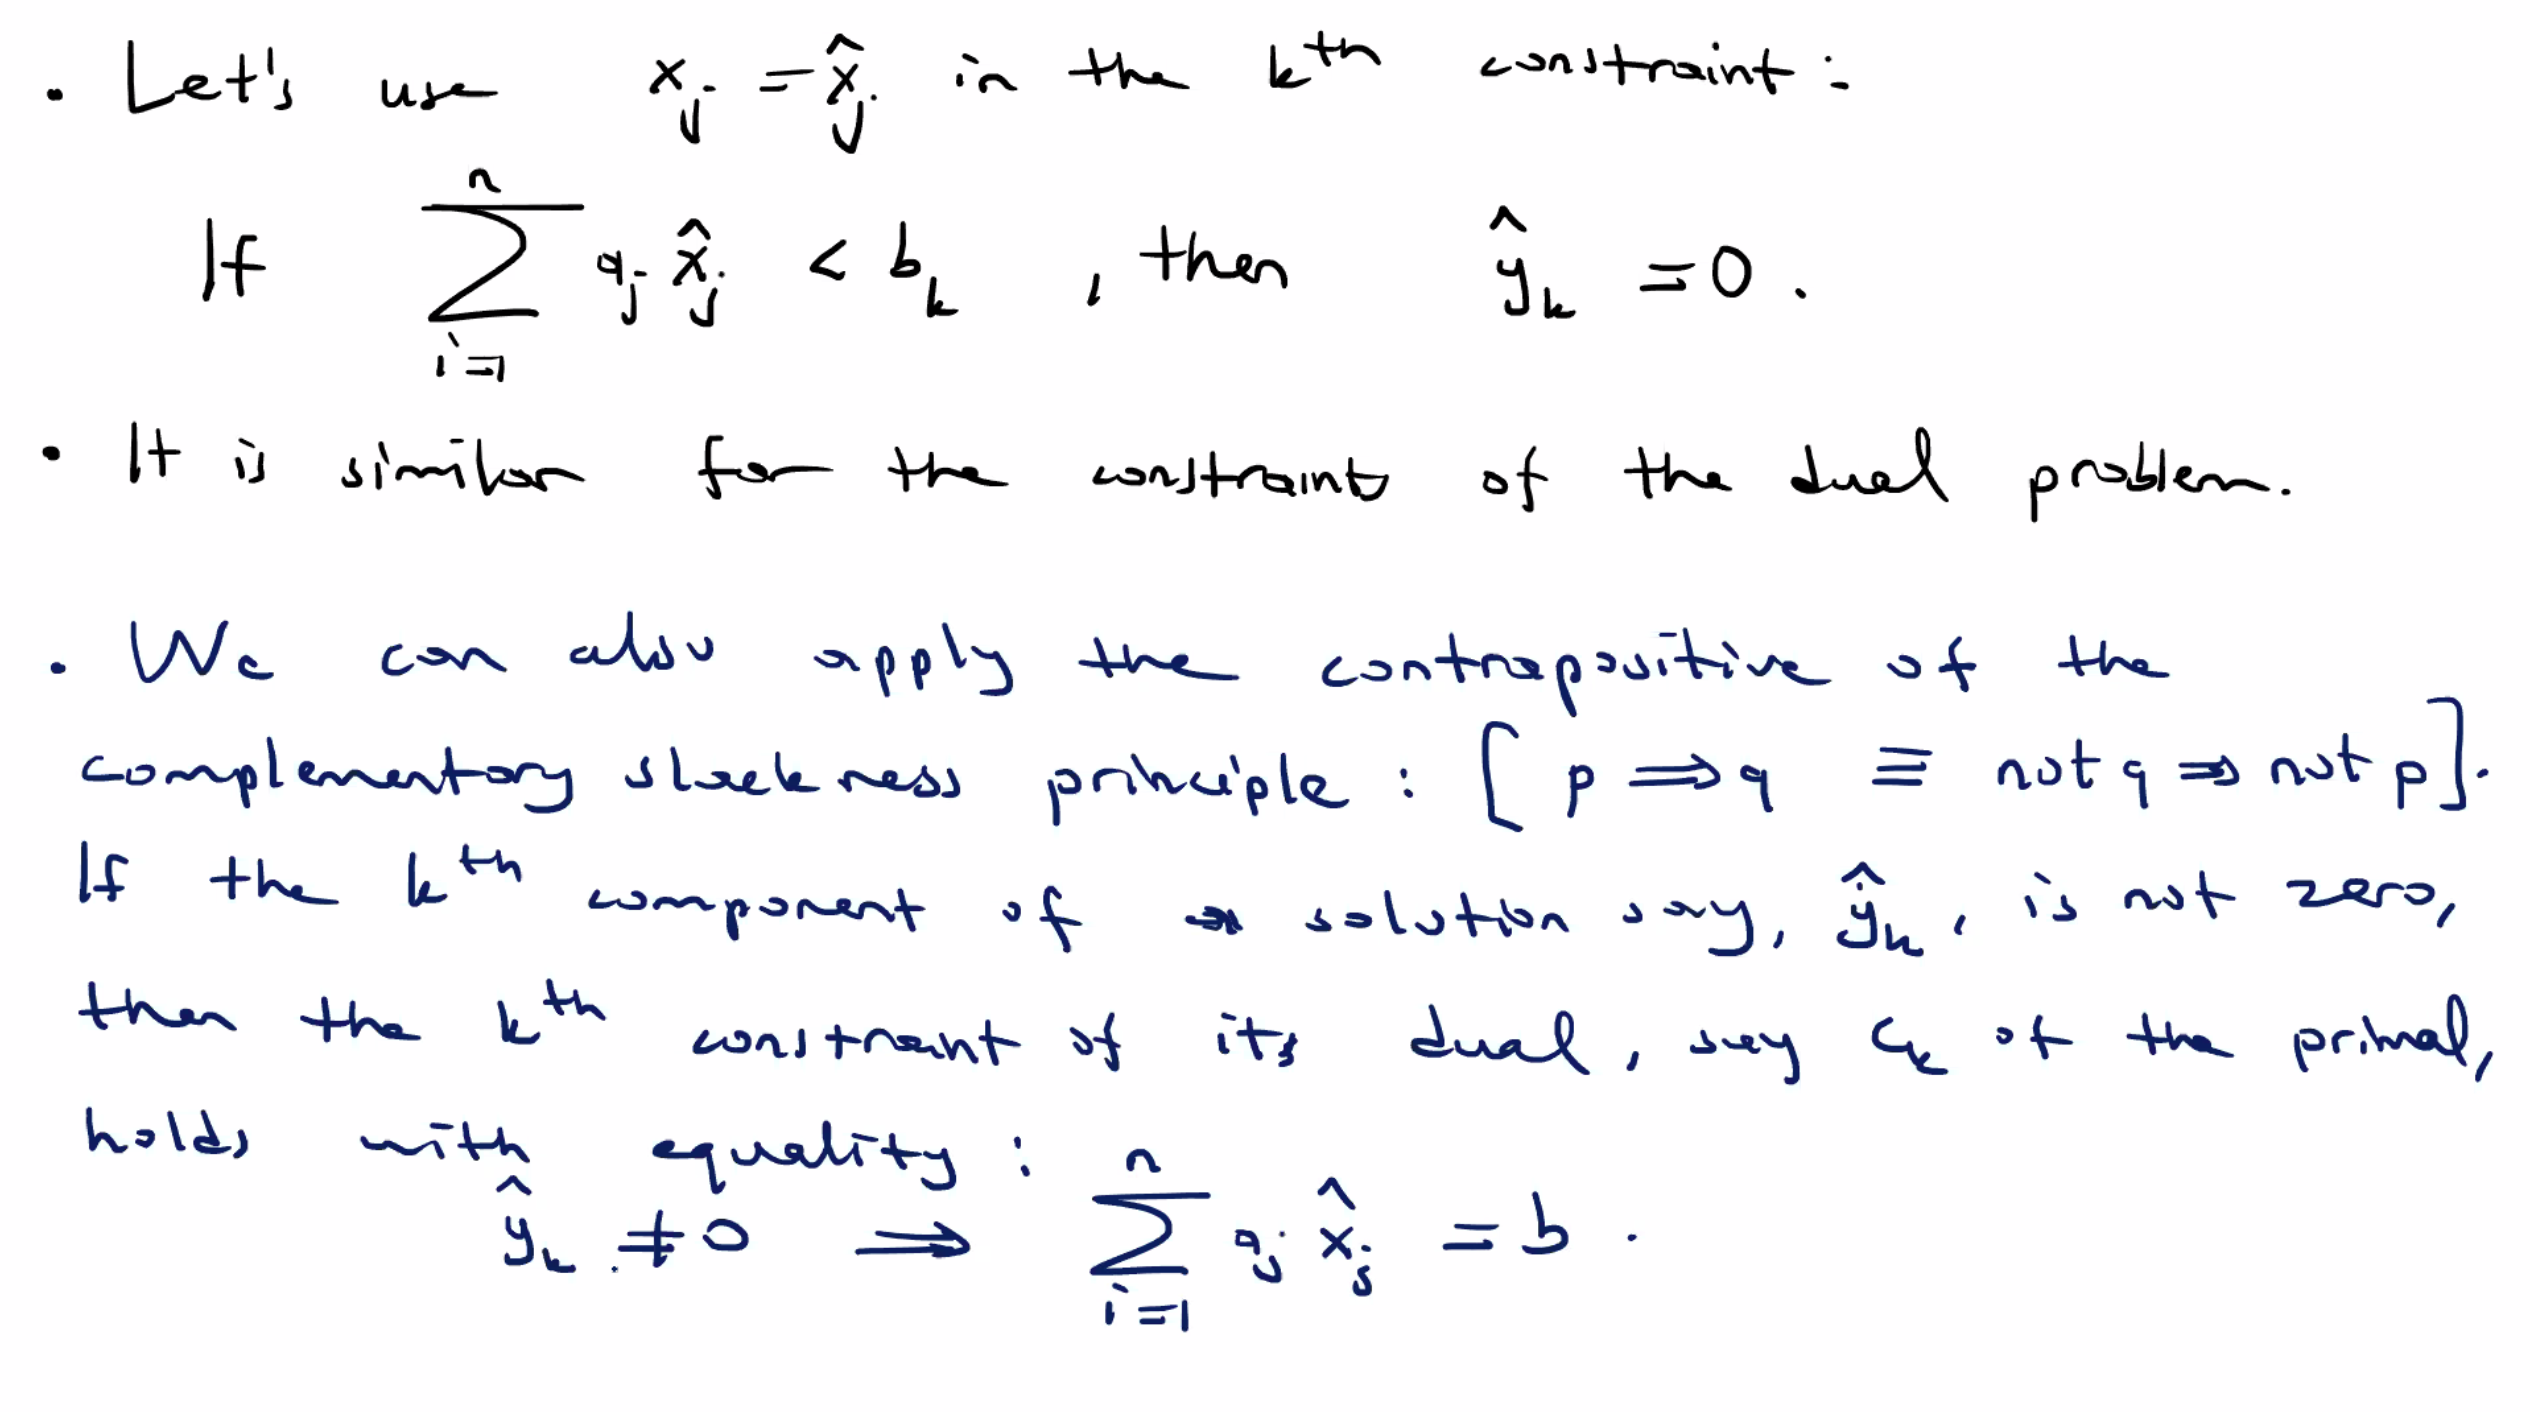 • Let's use x_j = x̂_j in the k^th constraint:
If ∑_{i=1}^{n} a_j x̂_j < b_k , then ŷ_k = 0.
• It is similar for the constraints of the dual problem.
• We can also apply the contrapositive of the
complementary slackness principle: [p ⇒ q ≡ not q ⇒ not p].
If the k^th component of a solution say, ŷ_k, is not zero,
then the k^th constraint of its dual, say C_k of the primal,
holds with equality:
ŷ_k ≠ 0 ⇒ ∑_{i=1}^{n} a_j x̂_j = b .